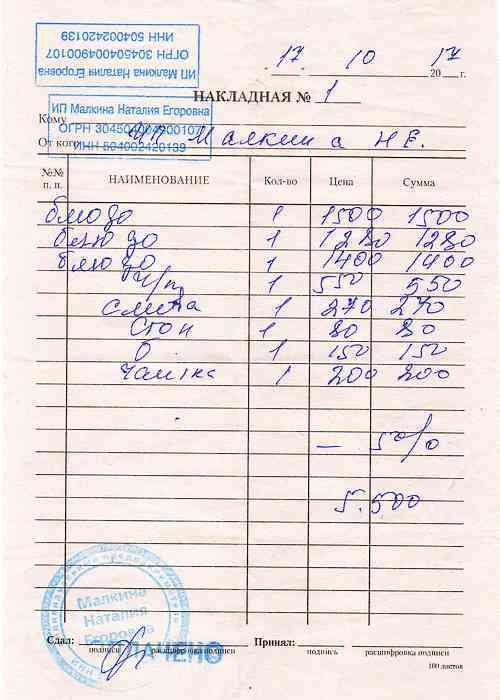 ИП Малкина Наталия Егоровна
ОГРН 304504004900107
ИНН 504002420139
17 10 2017 г.
НАКЛАДНАЯ № 1
ИП Малкина Наталия Егоровна
ОГРН 304504004900107
ИНН 504002420139
Кому
От кого ИП Малкина Н.Е.
№№ п. п. НАИМЕНОВАНИЕ Кол-во Цена Сумма
блюдо 1 1500 1500
блюдо 1 1280 1280
блюдо 1 1400 1400
1 550 550
1 270 270
1 80 80
1 150 150
чашка 1 200 200
— 5%
5.500
Малкина
Наталия
Егоровна
Сдал: Принял:
ОПЛАЧЕНО
подпись расшифровка подписи подпись расшифровка подписи
100 листов